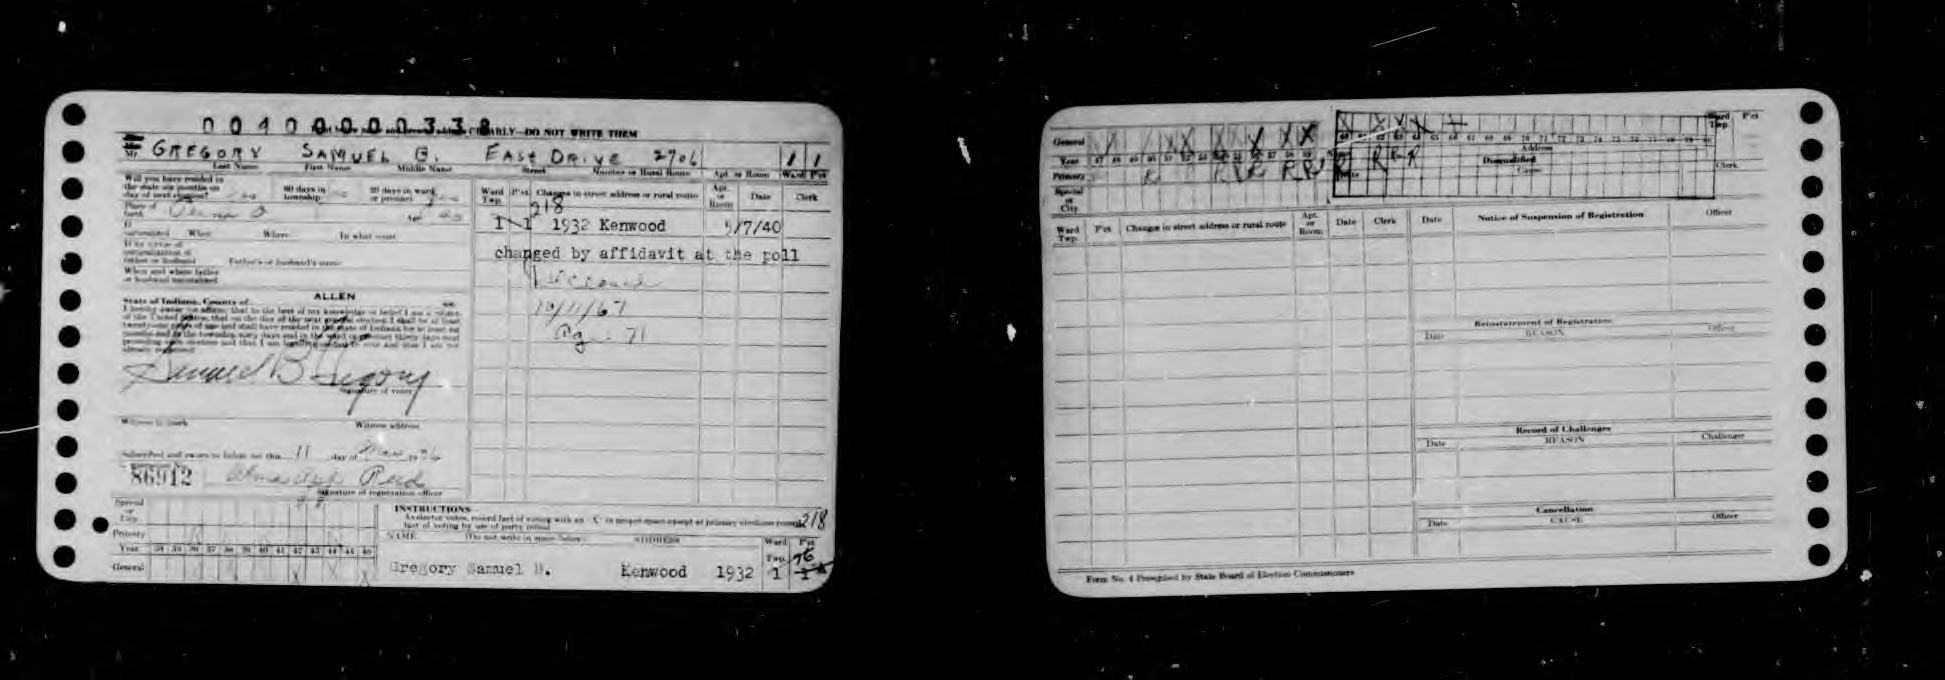 00400000338
Print below name and address CLEARLY—DO NOT WRITE THEM
Mr. GREGORY SAMUEL B. EAST DRIVE 2706 1 1
Last Name First Name Middle Name Street Number or Rural Route Apt. or Room Ward P'ct
Will you have resided in
the state six months on
day of next election? yes 60 days in township yes 30 days in ward or precinct yes
Place of birth Age
If naturalized When Where In what court
If by virtue of
naturalization of
father or husband Father's or husband's name
When and where father
or husband naturalized
State of Indiana, County of ALLEN ss:
I hereby swear (or affirm) that to the best of my knowledge or belief I am a citizen
of the United States, that on the day of the next general election I shall be of least
twenty-one years of age and shall have resided in the state of Indiana for at least six
months and in the township sixty days and in the ward or precinct thirty days next
preceding such election and that I am
already registered
Samuel B Gregory
Signature of voter
Witness to mark Witness address
Subscribed and sworn to before me this 11 day of 19
86912 Reed
Signature of registration officer
Ward Twp. P'ct. Changes in street address or rural route Apt. or Room Date Clerk
218
1 1 1932 Kenwood 5/7/40
changed by affidavit at the poll
Age 71
Special or City
Primary
Year 34 35 36 37 38 39 40 41 42 43 44 45 46
General X X X
INSTRUCTIONS—
If elector votes, record fact of voting with an "X" in proper space except at primary elections record
fact of voting by use of party initial
218
NAME (Do not write in space below) ADDRESS Ward Twp. P'ct
76
Gregory Samuel B. Kenwood 1932 1 1
General X X X X X X X X X
Year 47 48 49 50 51 52 53 54 55 56 57 58 59
Primary R R R R R R
Special or City
60 61 62 63 64 65 66 67 68 69 70 71 72 73 74 75 76 77 78 79 80
R R R
Ward Twp. P'ct
Address
Disqualified
Cause
Clerk
Ward Twp. P'ct Changes in street address or rural route Apt. or Room Date Clerk
Date Notice of Suspension of Registration Officer
Reinstatement of Registration
Date REASON Officer
Record of Challenges
Date REASON Challenger
Cancellation
Date CAUSE Officer
Form No. 4 Prescribed by State Board of Election Commissioners